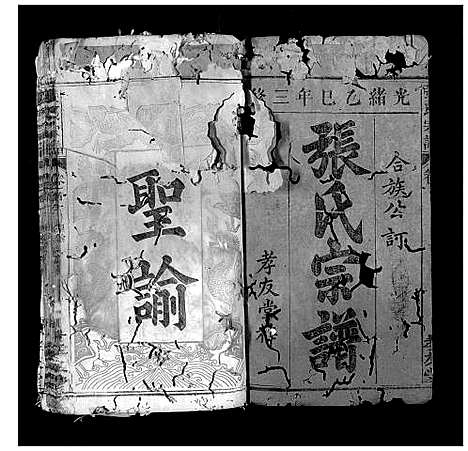 光緒乙巳年三修
合族公訂
張氏宗譜
孝友堂
聖諭